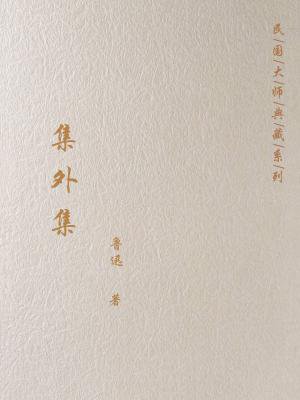 民国大师典藏系列
集外集
鲁迅 著